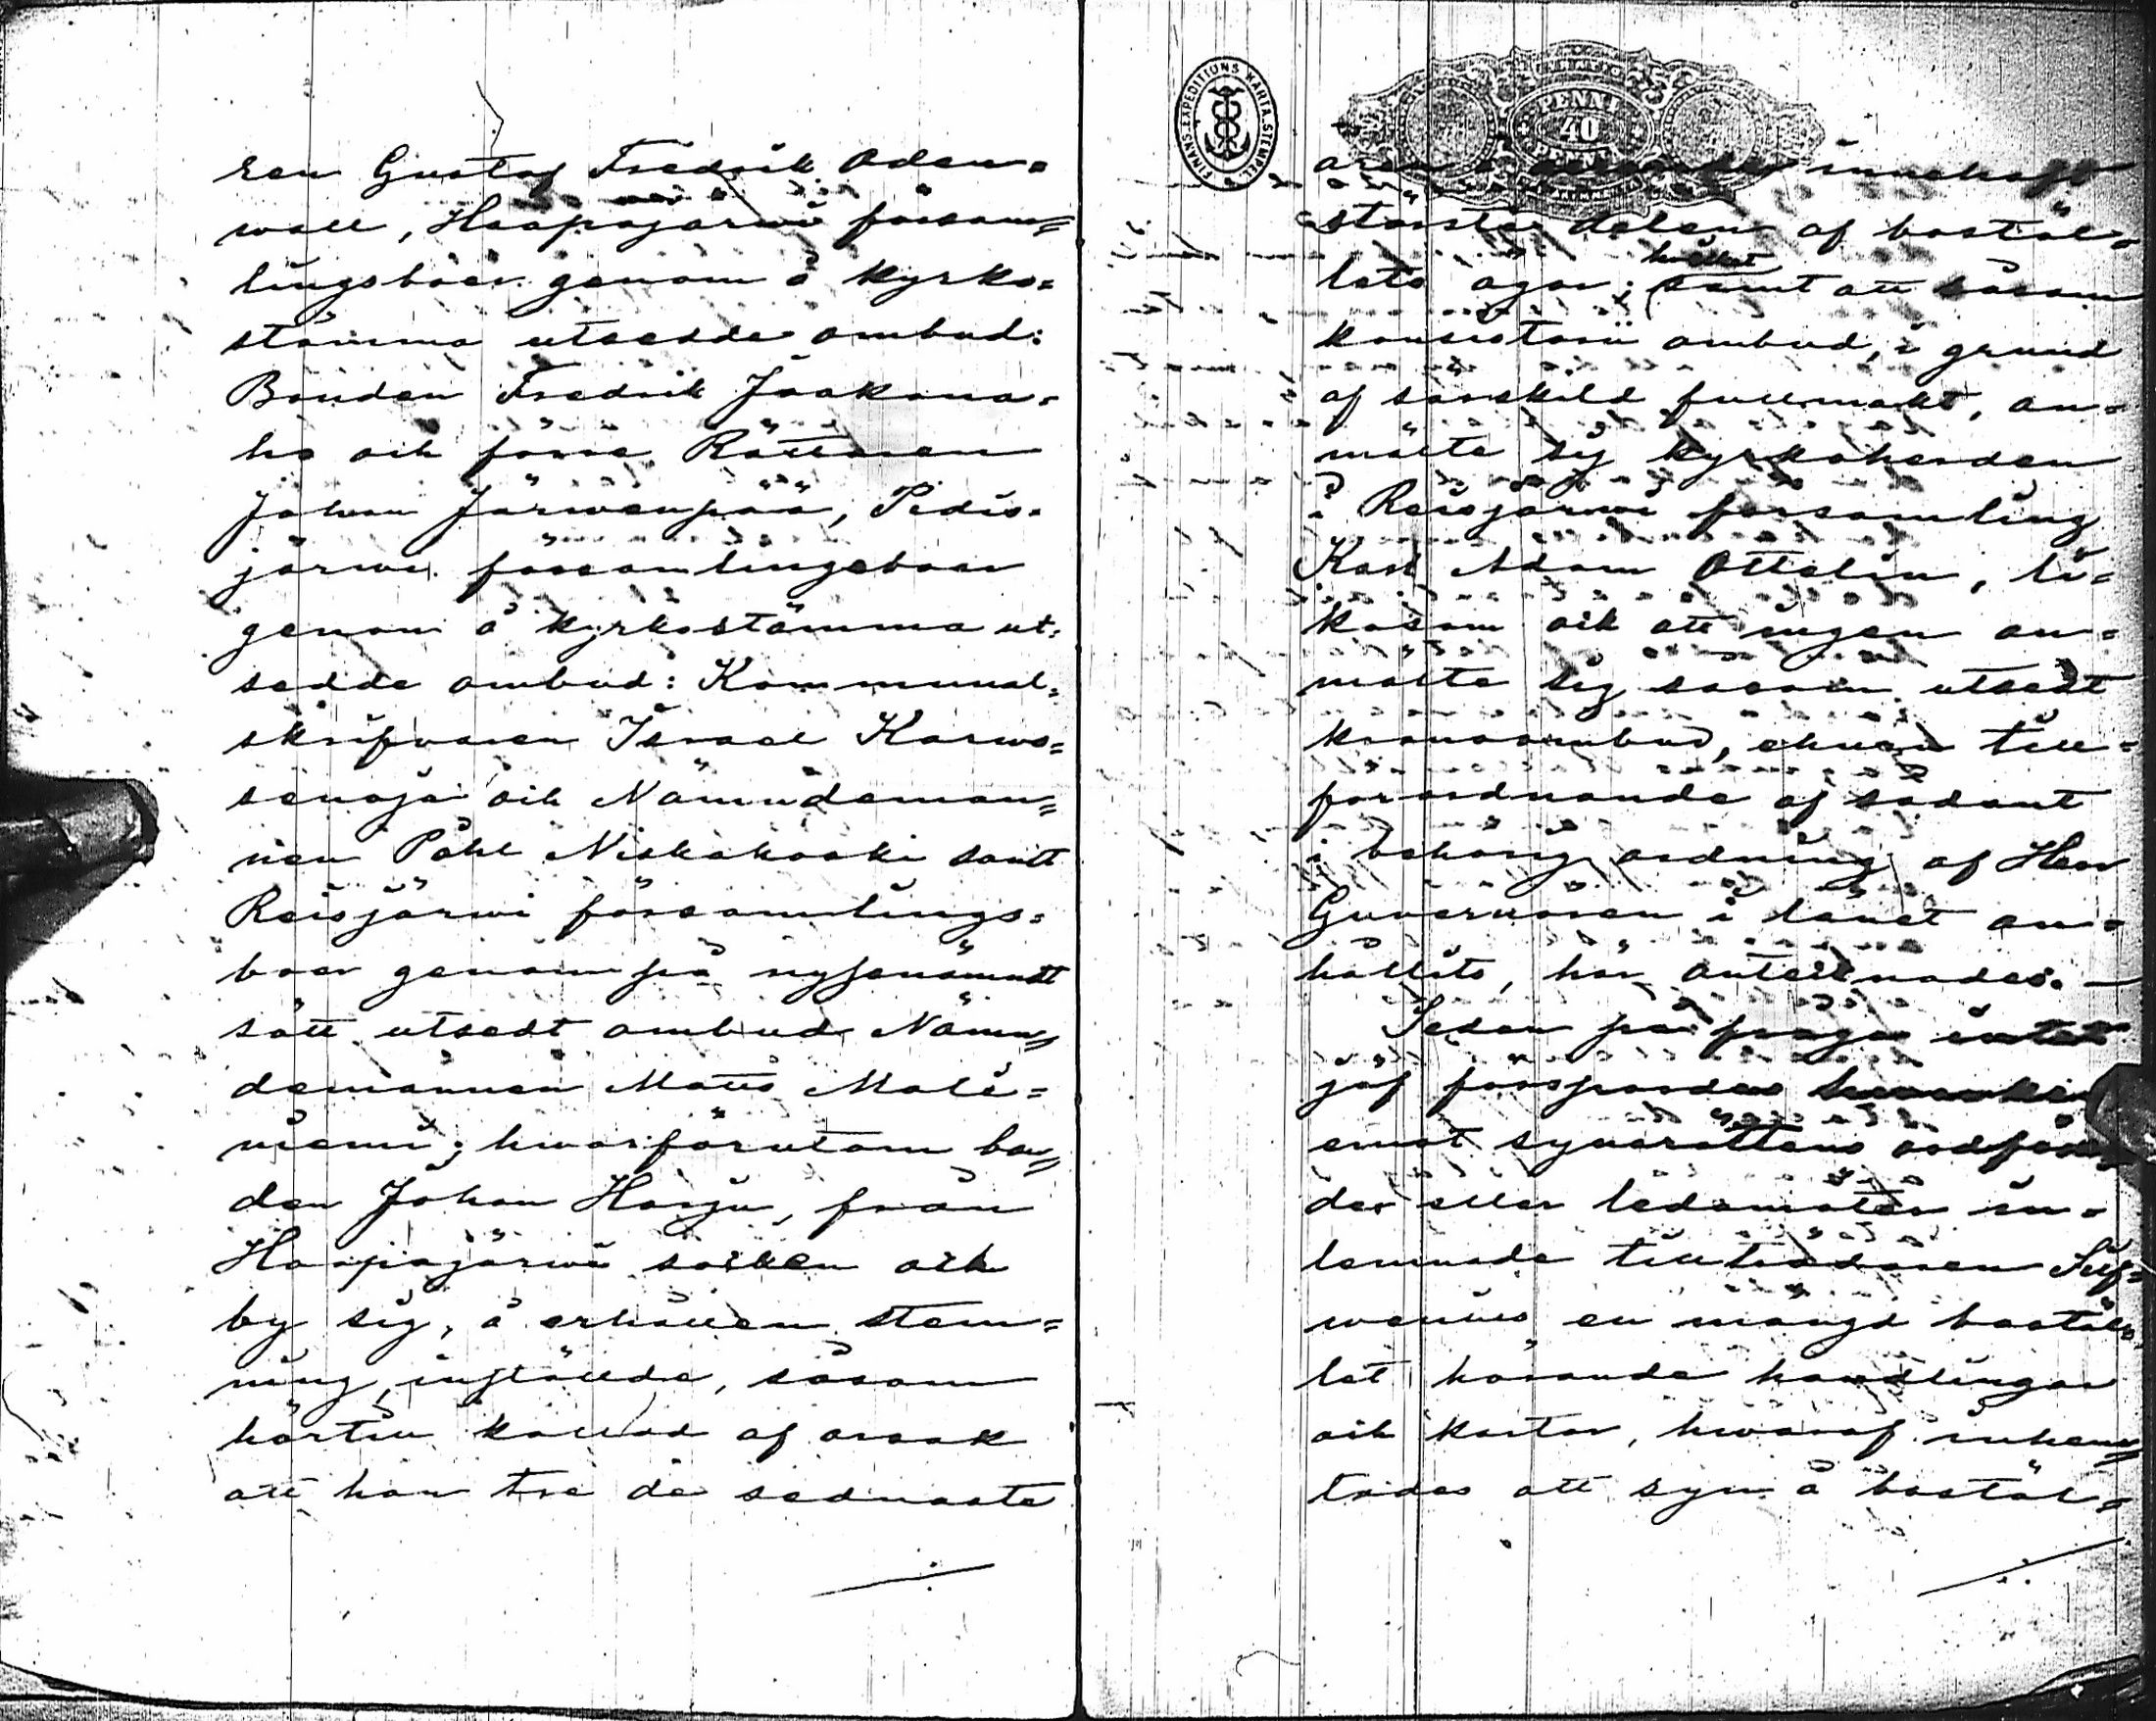 ren Gustaf Fredrik Aden=
wall, Haapajärwi församm=
lingsboer genom å kyrko=
stämma utsedde ombud:
Bonden Fredrik Jaakona=
ho och förre Rättaren
Johan Järwenpää, Pidis=
järwi församlingsboer
genom å kyrkostämma ut=
sedde ombud: Kommunal=
skrifvaren Israel Karwo=
senoja och Nämndeman=
nen Påhl Niskakoski samt
Reisjärwi församlings=
boer genom på nysnämndt
sätt utsedt ombud Nämn=
demannen Matts Mali=
niemi; hwarförutom bon=
den Johan Harju, från
Haapajärwi socken och
by sig, å erhållen stem=
ning, inställde, såsom
härtill kallad af orsak
att han tre de sednaste
FINMANS EXPEDITIONS KARTA STEMPEL
PENNI
40
åren innehaft
största delen af bostäl=
lets ägor; hwilket samt att såsom
konsistorii ombud, i grund
af särskild fullmakt, an=
mälte sig kyrkoherden
i Reisjärwi församling
Karl Adam Ottelin, li=
kasom och att ingen an=
mälte sig såsom utsedt
kronoombud, ehuru till=
förordnande af sådant
i behörig ordning af Herr
Guvernören i länet an=
hållits, här antecknades. —
Sedan på fråga intet
jäf förspordes
emot synerättens ordföran=
de eller ledamöter in=
lemnade tillträdaren Sulf=
wenius en mängd bostäl=
let hörande handlingar
och kartor, hwaraf inhem=
tades att syn å bostäl=